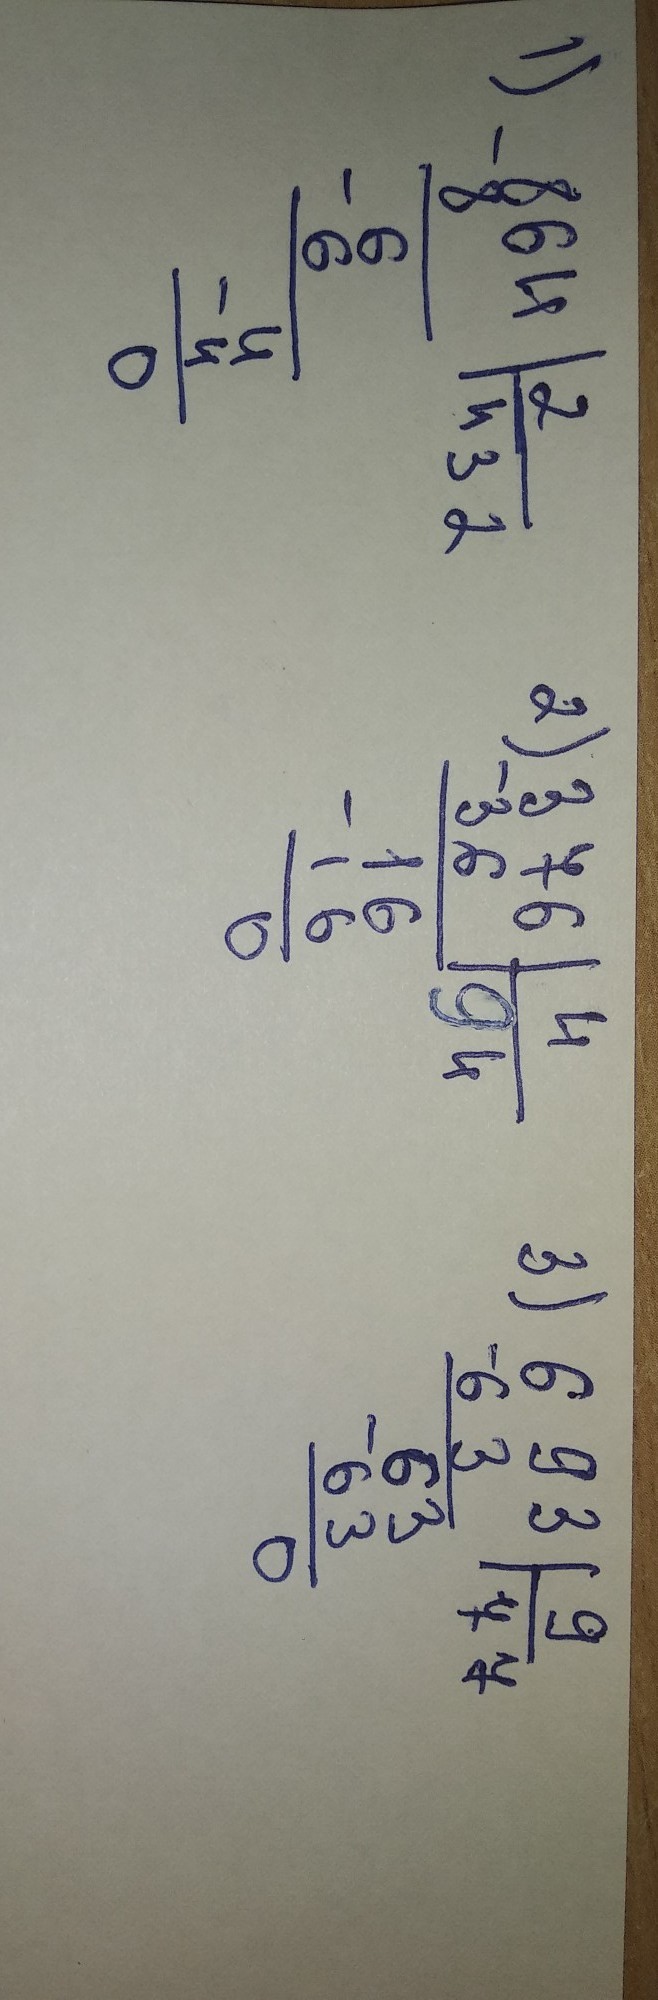 1) -864 | 2
8 | 432
-6
6
-4
4
0
2) -376 | 4
36 | 94
-16
16
0
3) -693 | 9
63 | 77
-63
63
0